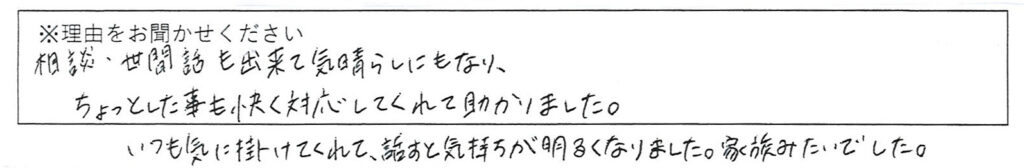 ※理由をお聞かせください
相談・世間話も出来て気晴らしにもなり、
ちょっとした事も快く対応してくれて助かりました。
いつも気に掛けてくれて、話すと気持ちが明るくなりました。家族みたいでした。